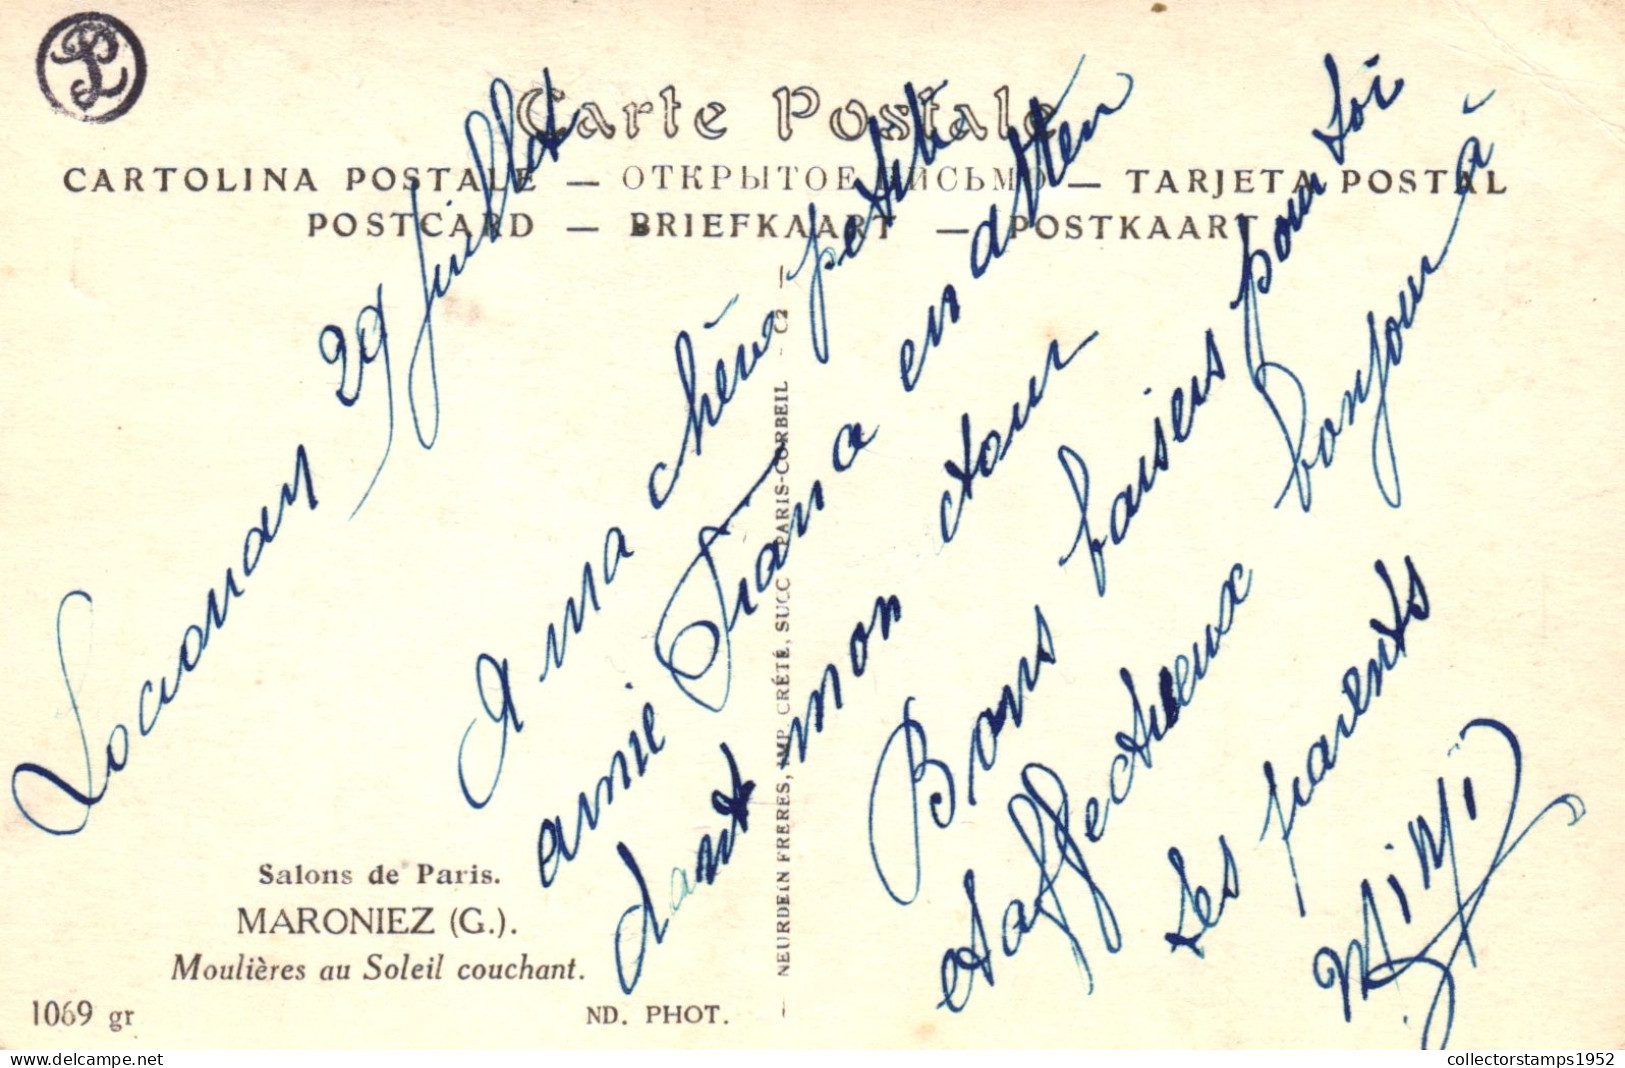 PL
Carte Postale
CARTOLINA POSTALE — ОТКРЫТОЕ ПИСЬМО — TARJETA POSTAL
POSTCARD — BRIEFKAART — POSTKAART
29 Juillet
A ma chère petite
amie Frana en atten
dant mon tour
Bons baisers pour toi
et affectueux bonjour à
tes parents
Mimi
NEURDEIN FRERES, IMP. CRÉTÉ, SUCC PARIS-CORBEIL — C2 —
Salons de Paris.
MARONIEZ (G.).
Moulières au Soleil couchant.
1069 gr
ND. PHOT.
www.delcampe.net
collectorstamps1952